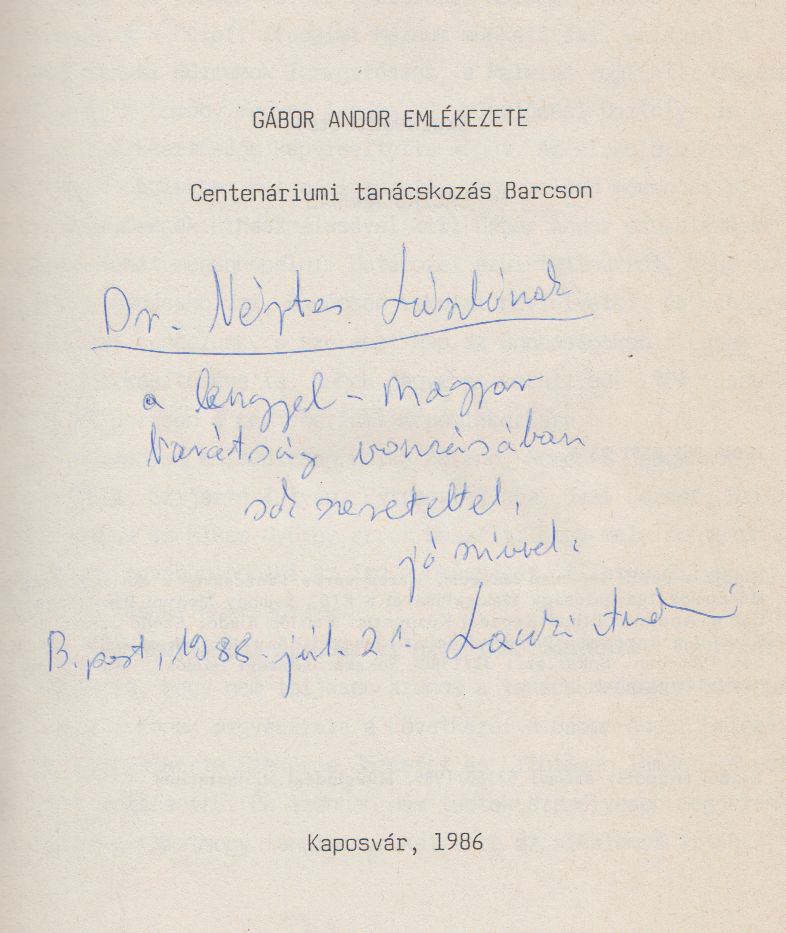 GÁBOR ANDOR EMLÉKEZETE
Centenáriumi tanácskozás Barcson
Dr. Lászlónak
a lengyel-magyar
barátság vonzásában
sok szeretettel,
jó szívvel:
B.pest, 1988. júl. 21. András
Kaposvár, 1986